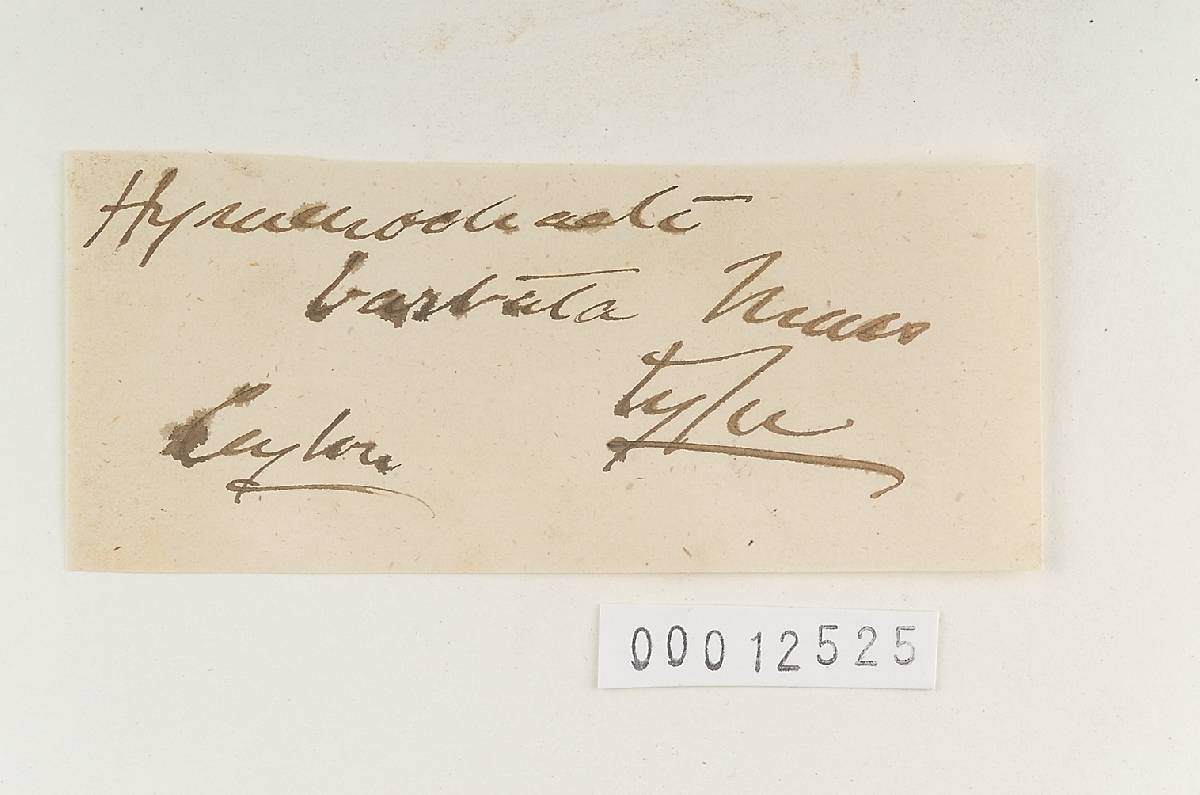 Hymenochaete
barbata Massee
type
Ceylon
00012525